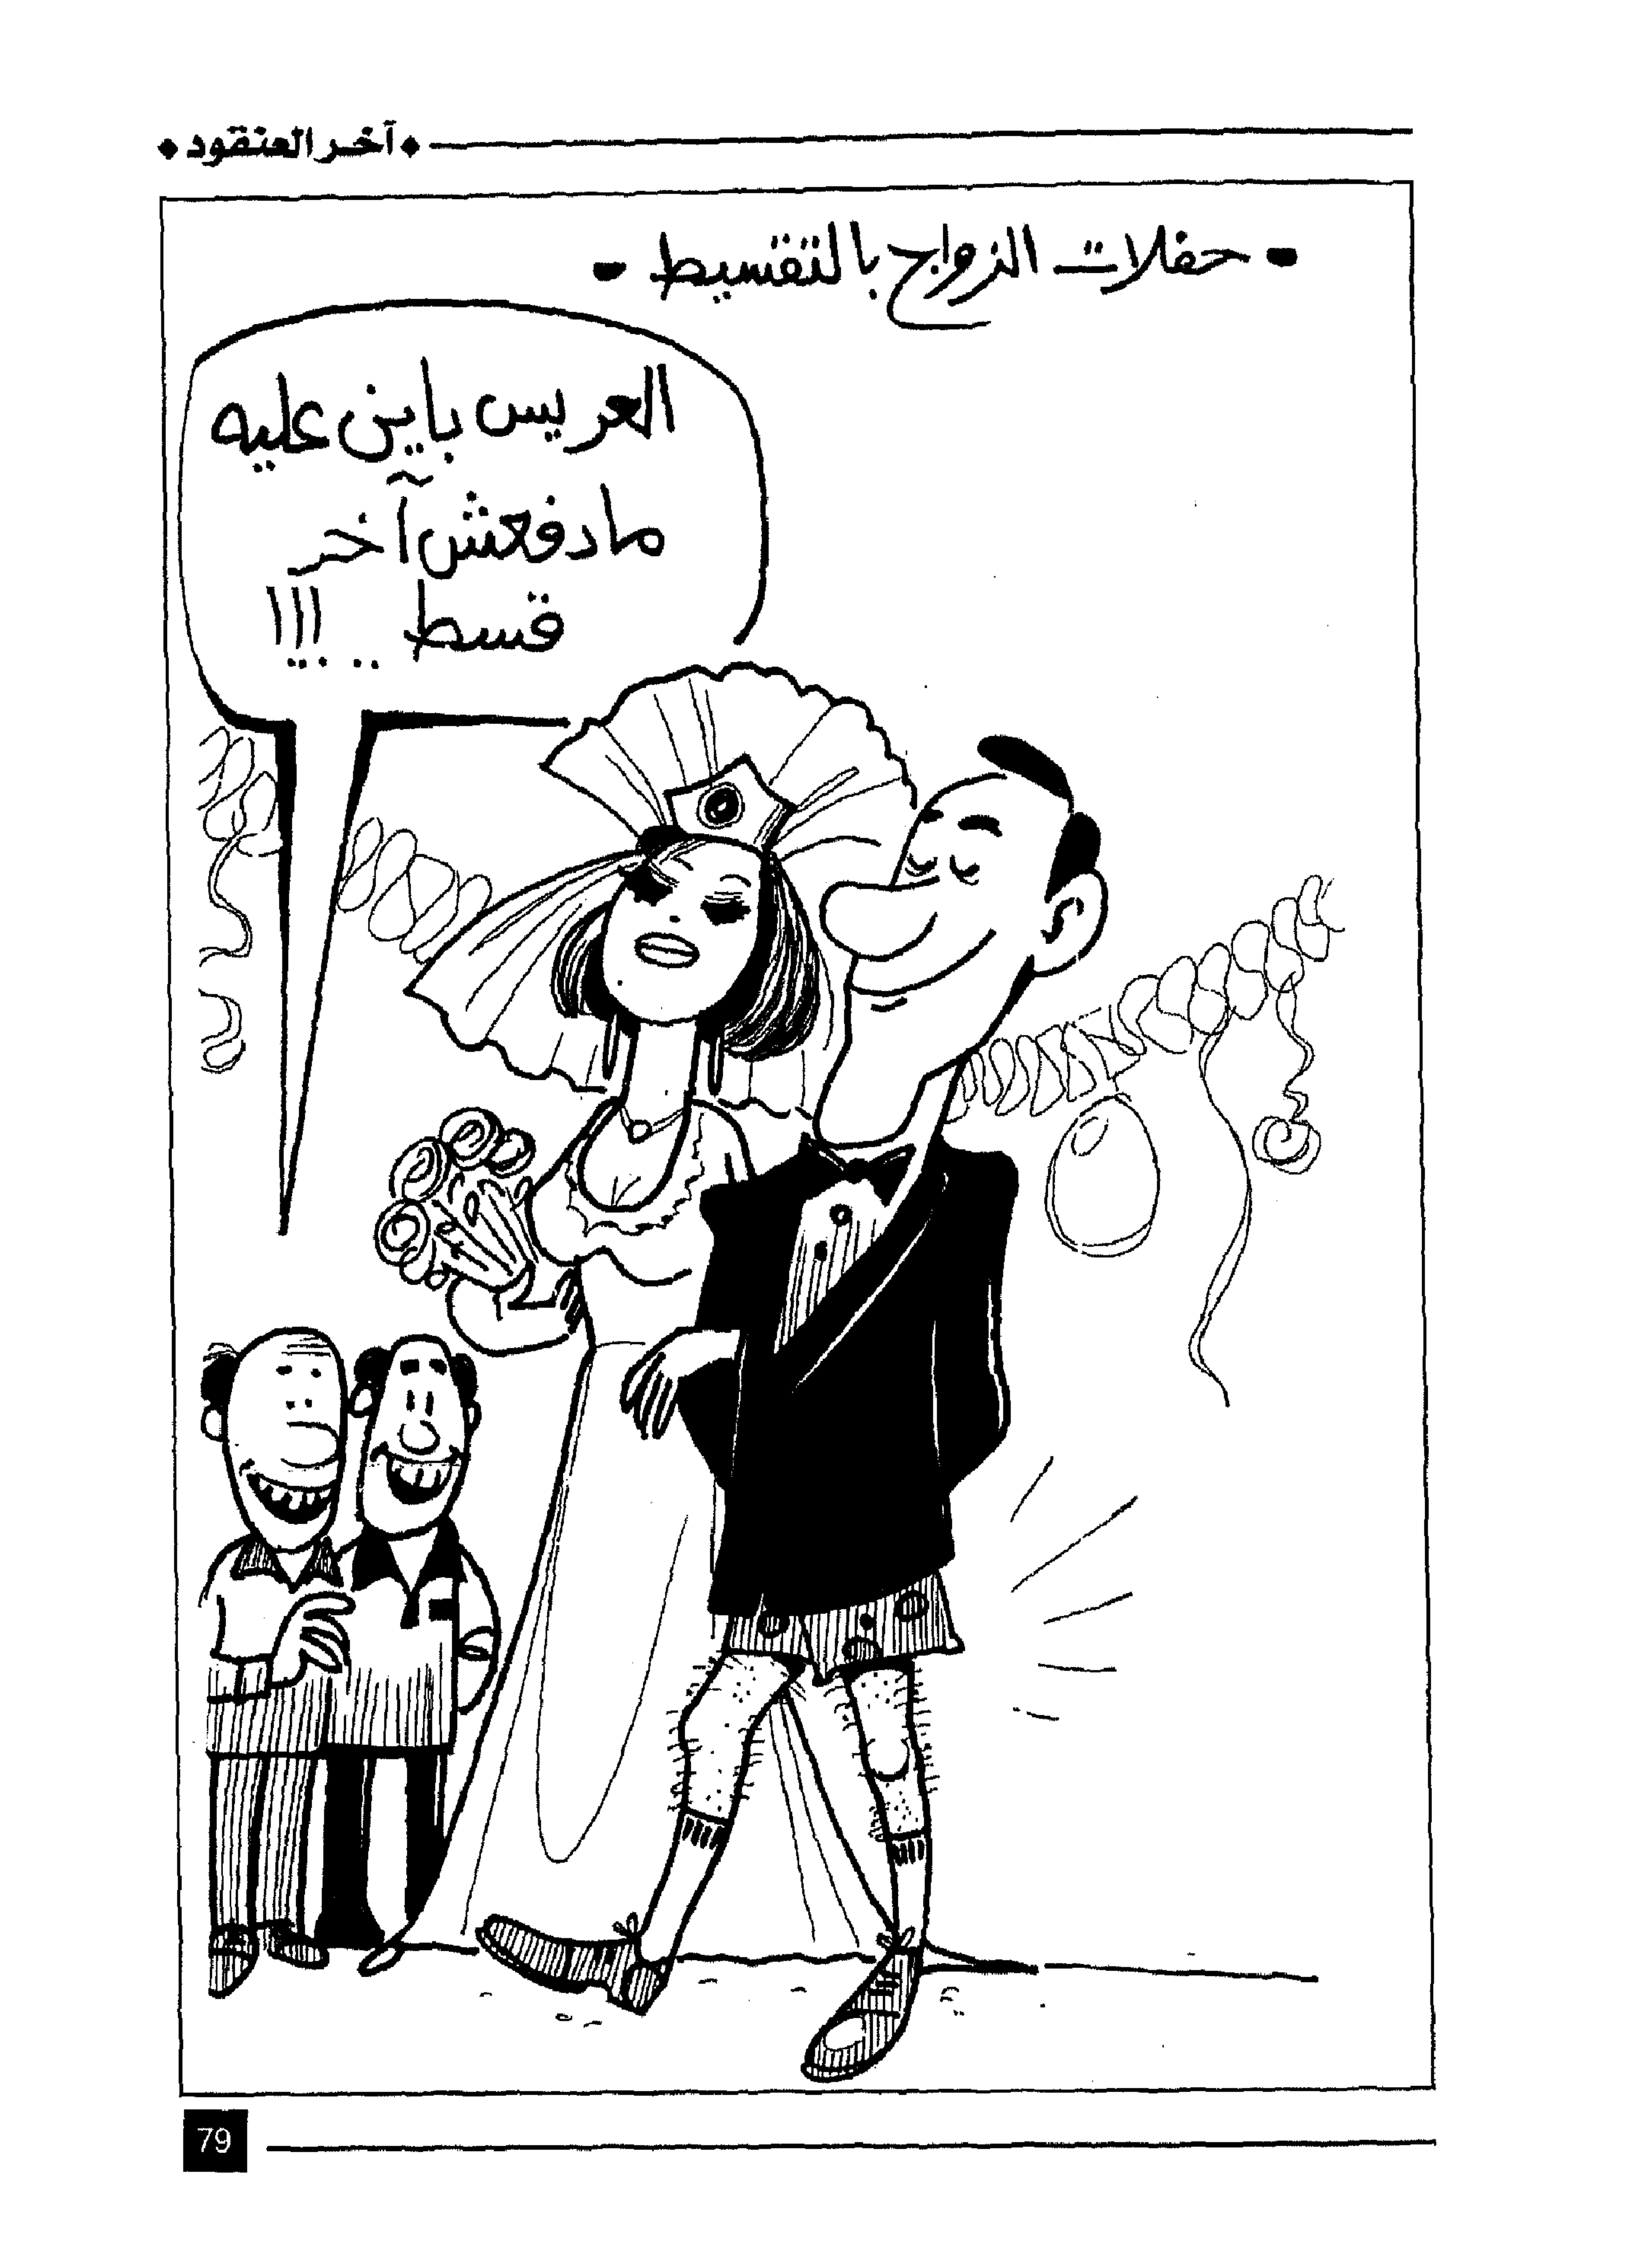 ◆ آخر العنقود ◆
- حفلات الزواج بالتقسيط -
العريس باين عليه
مادفعش آخر
قسط .. !!!
79